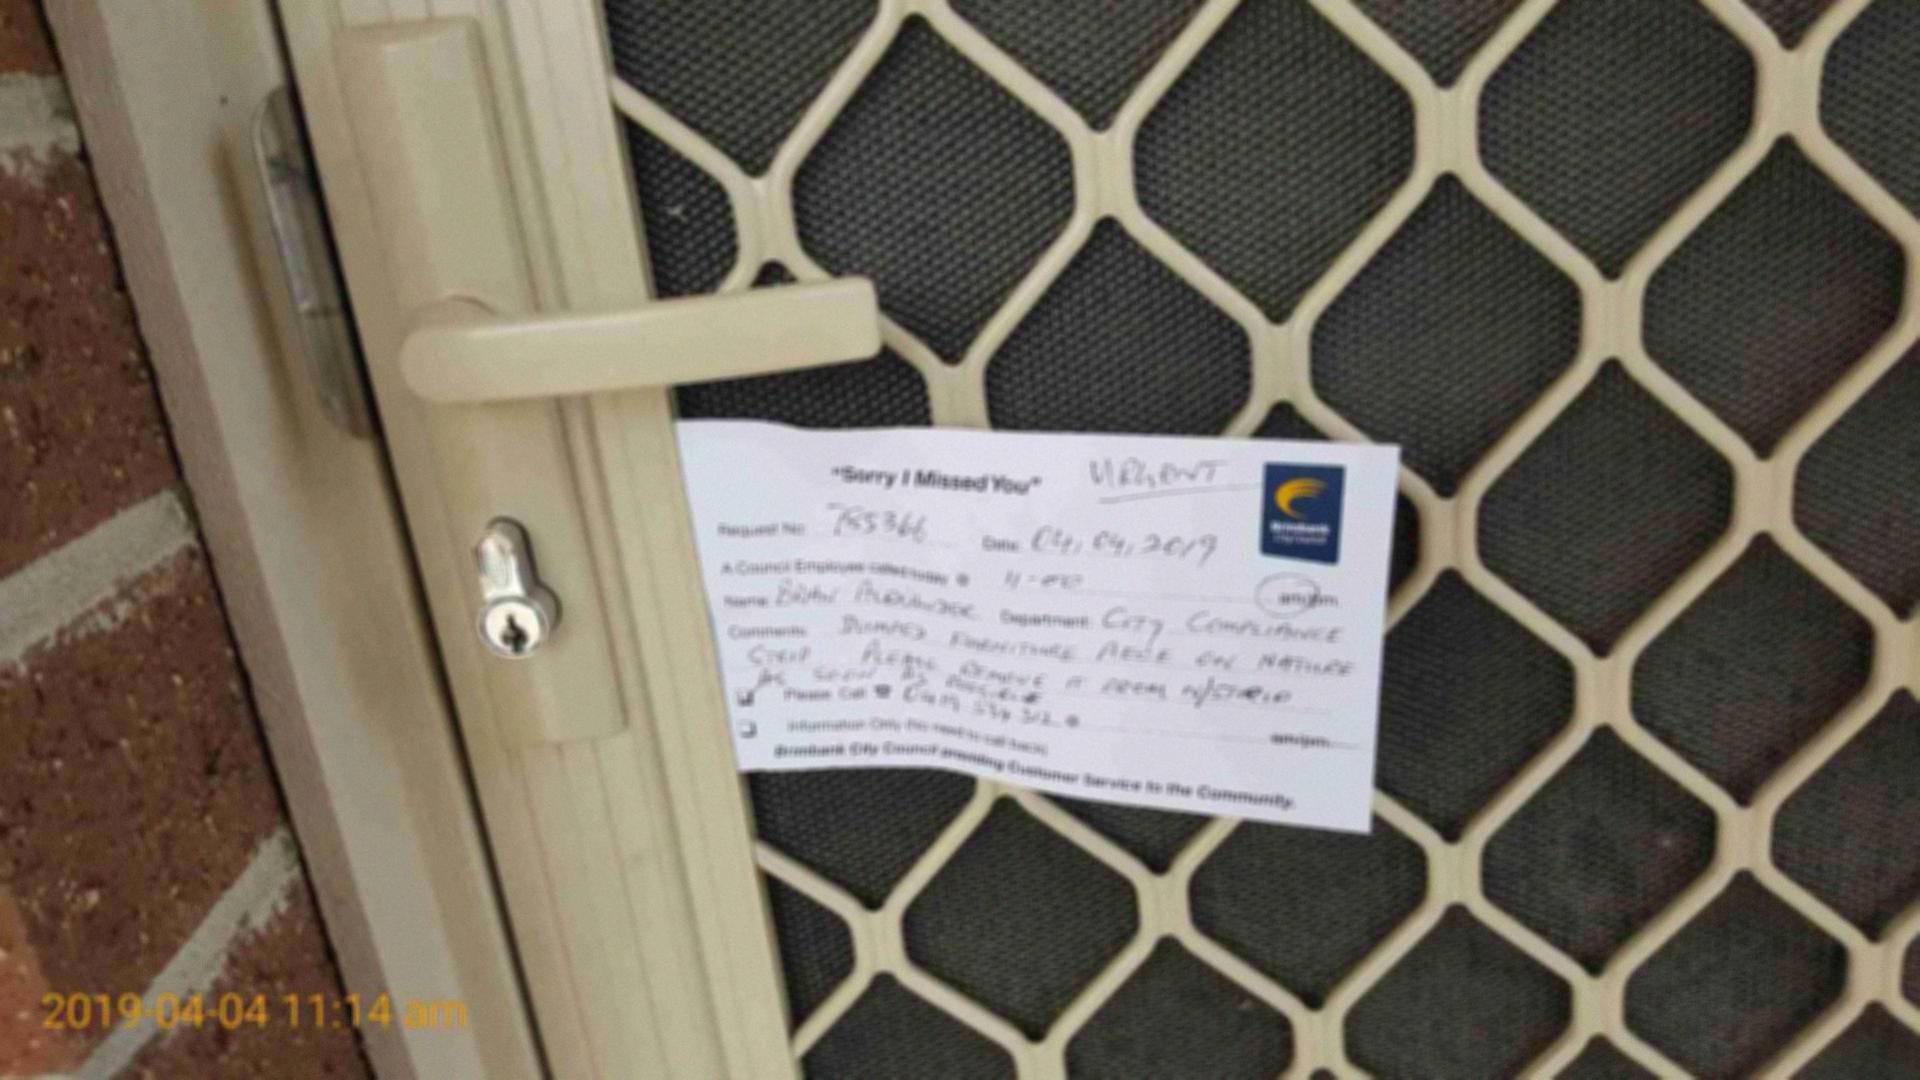 "Sorry I Missed You" URGENT
Brimbank
City Council
Request No: 785366 Date: 04, 04, 2019
A Council Employee called today @ 11-00 am/pm
Name: BRIAN Department: CITY COMPLIANCE
Comments: DUMPED FURNITURE ON NATURE
STRIP PLEASE REMOVE IT FROM N/STRIP
AS SOON AS POSSIBLE
Please Call 312 @ am/pm
Information Only (No need to call back)
Brimbank City Council providing Customer Service to the Community.
2019-04-04 11:14 am